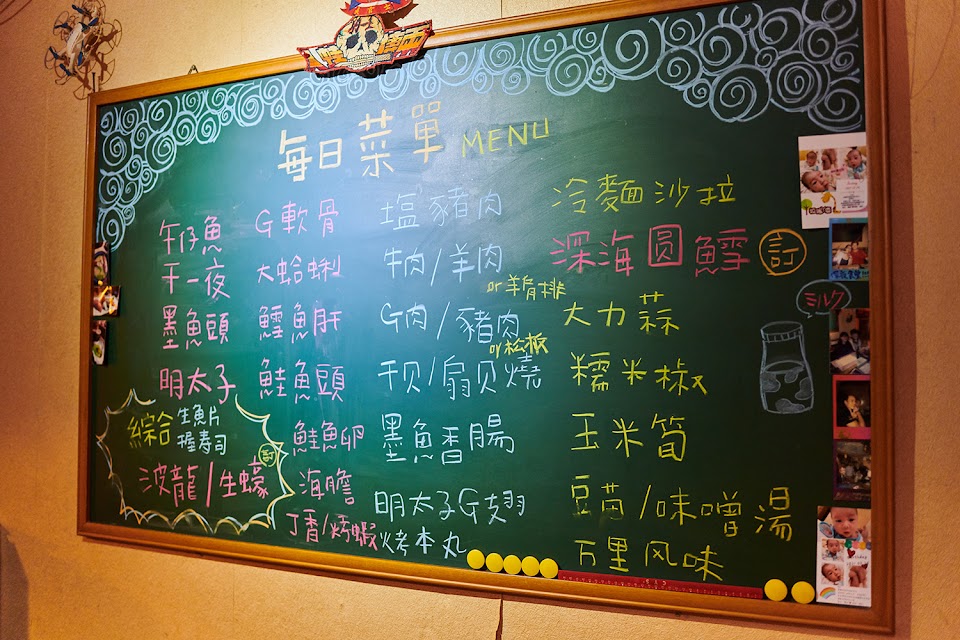 每日菜單 MENU
午仔魚
干一夜
墨魚頭
明太子
綜合 生魚片
握寿司
波龍/生蠔 訂
G軟骨
大蛤蜊
鱈魚肝
鮭魚頭
鮭魚卵
海膽
丁香/烤蝦
塩豬肉
牛肉/羊肉
or羊肩排
G肉/豬肉
or松板
干贝/扇贝燒
墨魚香腸
明太子G翅
烤本丸
冷麵沙拉
深海圆鱈 訂
大力蒜
糯米椒
玉米筍
豆苗/味噌湯
万里风味
ミルク